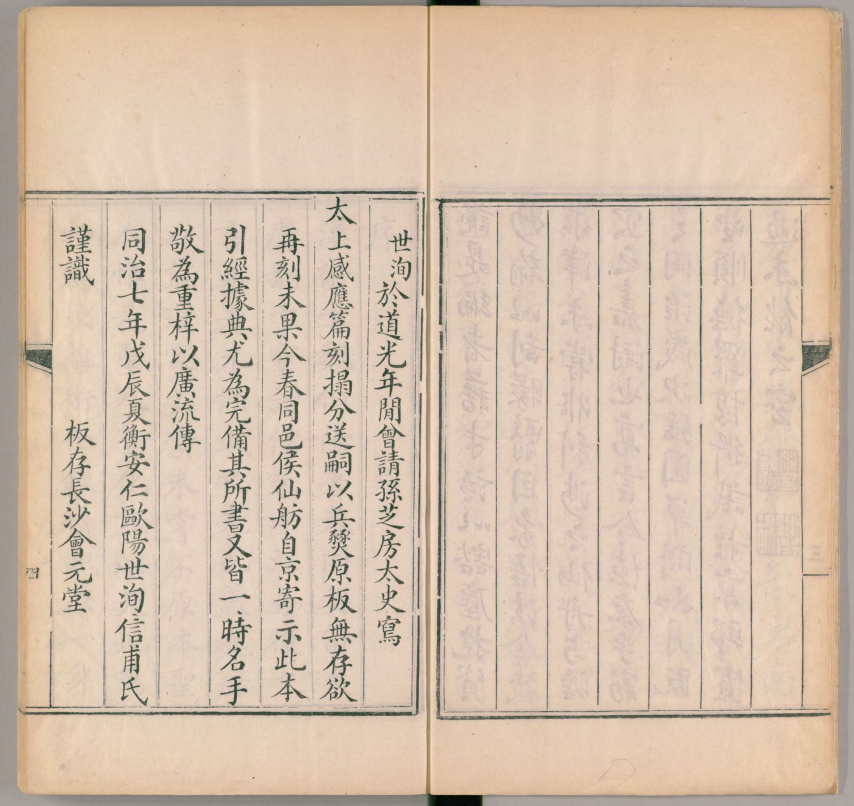 三
世洵於道光年閒曾請孫芝房太史寫
太上感應篇刻搨分送嗣以兵燹原板無存欲
再刻未果今春同邑侯仙舫自京寄示此本
引經據典尤為完備其所書又皆一時名手
敬為重梓以廣流傳
同治七年戊辰夏衡安仁歐陽世洵信甫氏
謹識 板存長沙會元堂
四